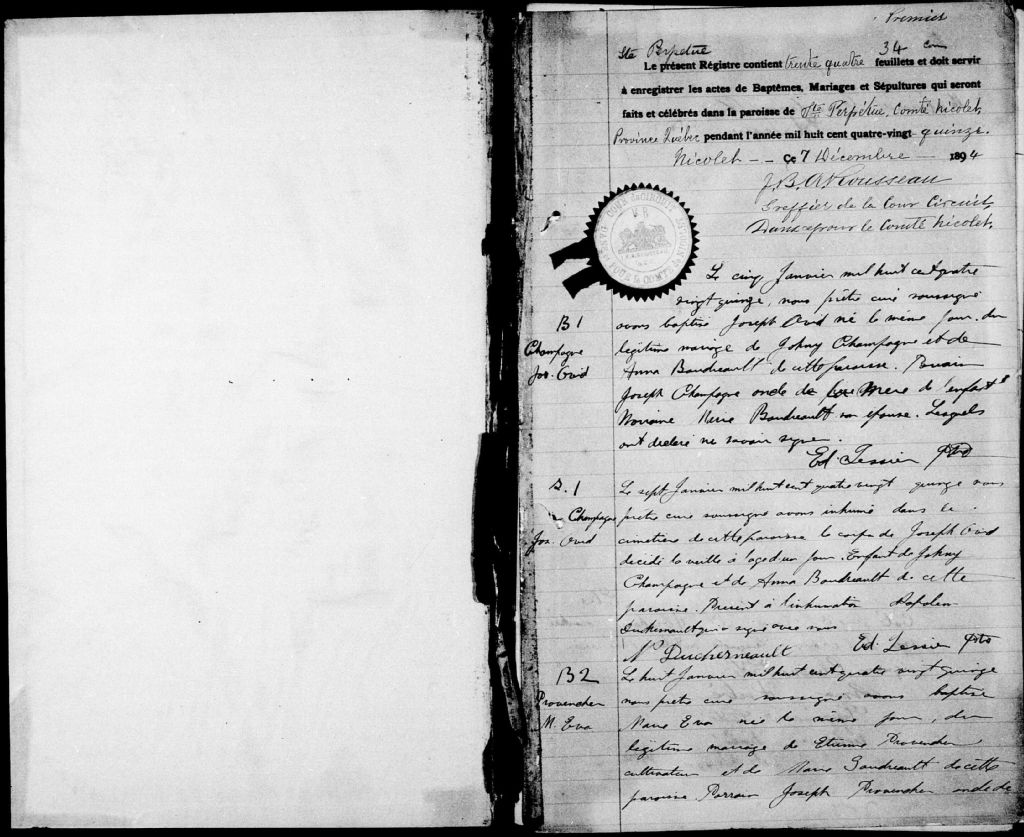 Premier
Ste Perpétue 34 
Le présent Régistre contient trente quatre feuillets et doit servir
à enregistrer les actes de Baptêmes, Mariages et Sépultures qui seront
faits et célébrés dans la paroisse de Ste Perpétue, Comté Nicolet,
Province Québec pendant l'année mil huit cent quatre-vingt-quinze.
Nicolet — Ce 7 Décembre — 1894
J. B. A. Rousseau
Greffier de la Cour Circuit
Dans & pour le Comté Nicolet,
Le cinq Janvier mil huit cent quatre
vingt quinze, nous prêtre curé soussigné
B 1
avons baptisé Joseph Ovid né le même jour du
Champagne
légitime mariage de Johny Champagne et de
Jos. Ovid
Anna Boudreault de cette paroisse. Parrain
Joseph Champagne oncle de l'enfant
Marraine Marie Boudreault son épouse. Lesquels
ont déclaré ne savoir signer.
Ed. Tessier Ptre
S. 1
Le sept Janvier mil huit cent quatre vingt quinze nous
Champagne
prêtre curé soussigné avons inhumé dans le
Jos. Ovid
cimetière de cette paroisse le corps de Joseph Ovid
décédé la veille à l'age d'un jour. Enfant de Johny
Champagne et de Anna Boudreault de cette
paroisse. Présent à l'inhumation Napoléon
Duchesneault qui a signé avec nous
N. Duchesneault Ed. Tessier Ptre
B 2
Le huit Janvier mil huit cent quatre vingt quinze
Provencher
nous prêtre curé soussigné avons baptisé
M. Eva
Marie Eva née le même jour, du
légitime mariage de Etienne Provencher
cultivateur et de Marie Gaudreault de cette
paroisse. Parrain Joseph Provencher oncle de